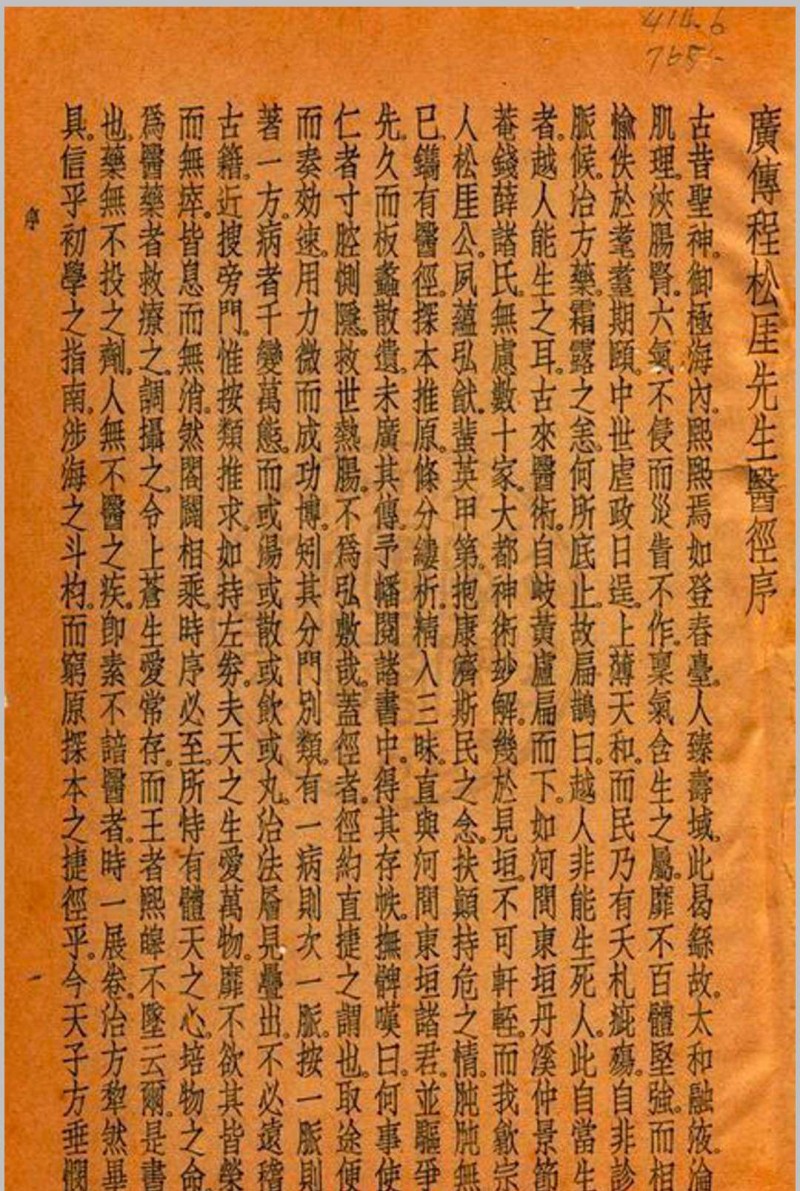 414.6
765-
廣傳程松厓先生醫徑序
古昔聖神。御極海內。熙熙焉如登春臺。人臻壽域。此曷繇故。太和融液。淪
肌理。浹腸腎。六氣不侵而災眚不作。稟氣含生之屬。靡不百體堅強。而相
愉佚於耄耋期頤。中世虐政日逞。上薄天和。而民乃有夭札疵癘。自非診
脈候。治方藥。霜露之恙。何所底止。故扁鵲曰。越人非能生死人。此自當生
者。越人能生之耳。古來醫術。自岐黃盧扁而下。如河間東垣丹溪仲景節
菴錢薛諸氏。無慮數十家。大都神術妙解。幾於見垣。不可軒輊。而我歙宗
人松厓公。夙蘊弘猷。蜚英甲第。抱康濟斯民之念。扶顛持危之情。肫肫無
已。鐫有醫徑。探本推原。條分縷析。精入三昧。直與河間東垣諸君。並驅爭
先。久而板蠹散遺。未廣其傳。予幡閱諸書中。得其存帙。撫髀嘆曰。何事使
仁者寸腔惻隱。救世熱腸。不為弘敷哉。蓋徑者。徑約直捷之謂也。取途便
而奏効速。用力微而成功博。矧其分門別類。有一病則次一脈。按一脈則
著一方。病者千變萬態。而或湯或散或飲或丸。治法層見疊出。不必遠稽
古籍。近搜旁門。惟按類推求。如持左劵。夫天之生愛萬物。靡不欲其皆榮
而無瘁。皆息而無消。然闔闢相乘。時序必至。所恃有體天之心。培物之命。
為醫藥者救療之。調攝之。令上蒼生愛常存。而王者熙皥不墜云爾。是書
也。藥無不投之劑。人無不醫之疾。卽素不諳醫者。時一展卷。治方犂然畢
具。信乎初學之指南。涉海之斗杓。而窮原探本之捷徑乎。今天子方垂憫
序
一